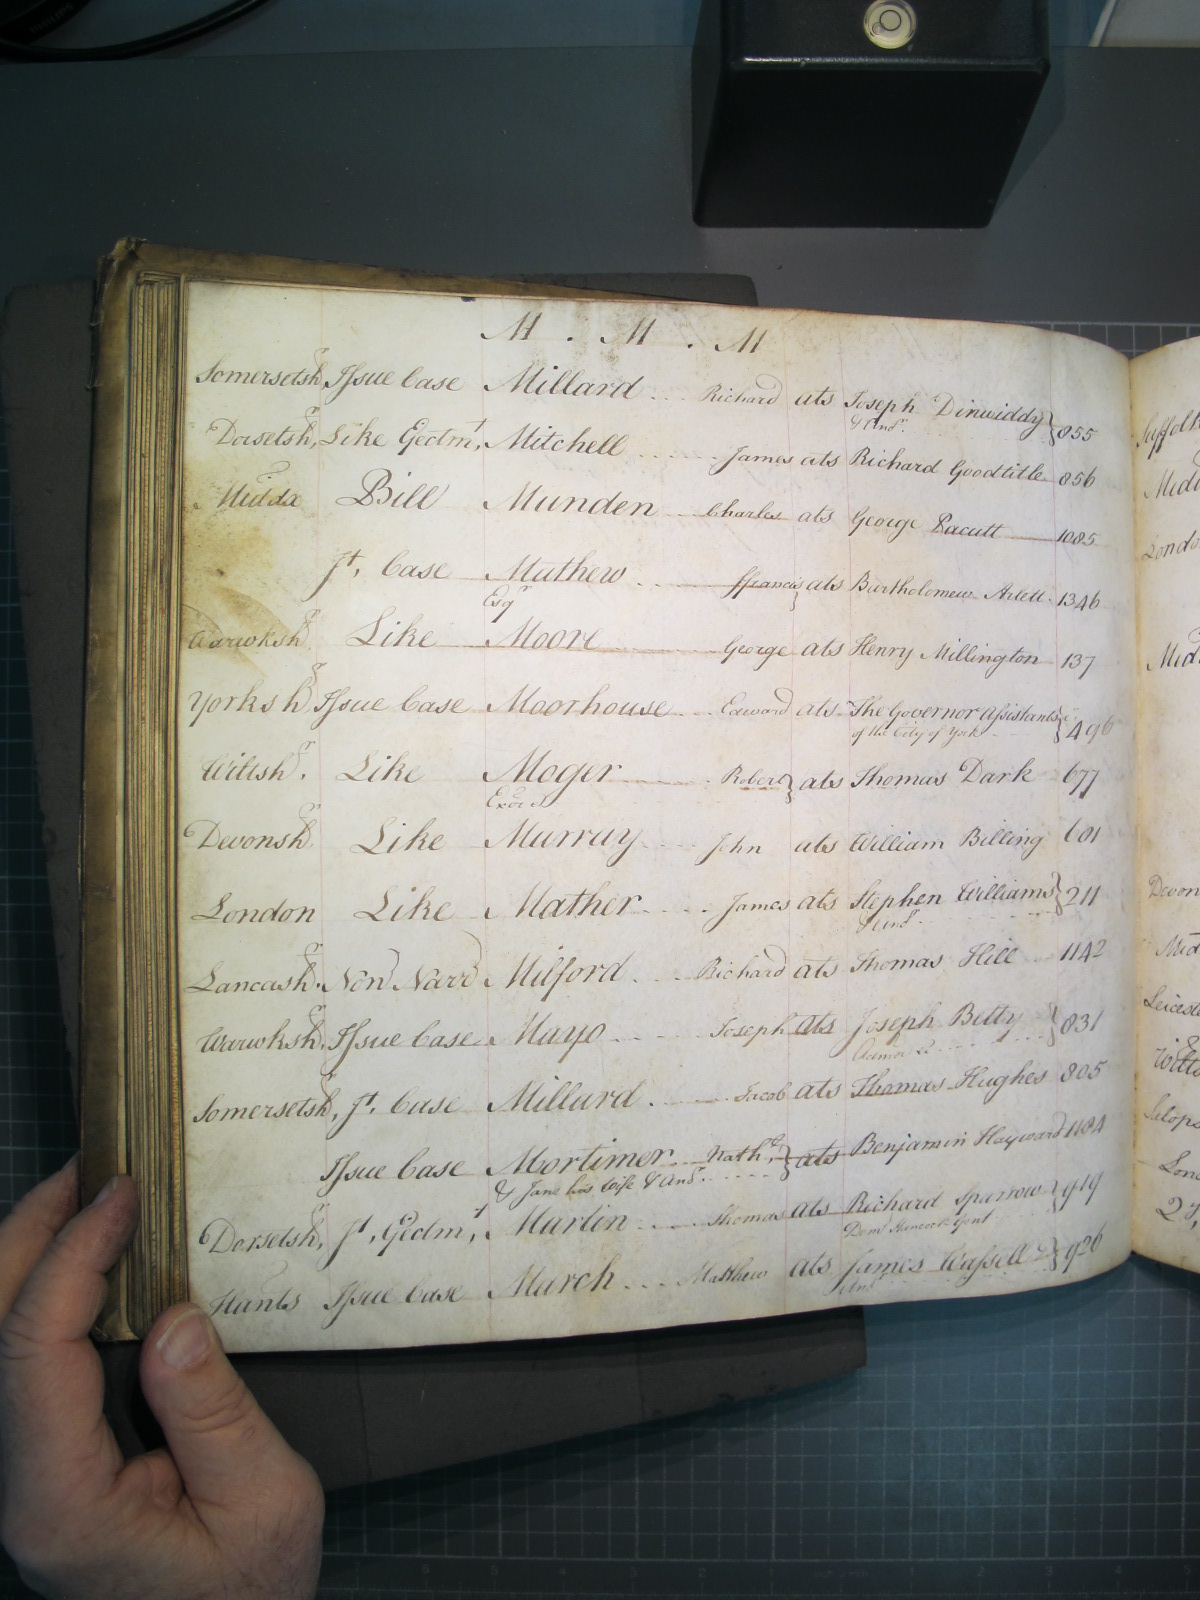 M . M . M
Somersetsh.r Issue Case Millard Richard ats Joseph Dinwiddy } 855
& Anor.
Dorsetsh.r Like Gectmt. Mitchell James ats Richard Goodtitle 856
Middx Bill Munden Charles ats George Pacutt 1085
Jt. Case Mathew ffrancis } ats Bartholomew Arlett 1346
Esqr
Warwksh.r Like Moore George ats Henry Millington 137
Yorksh.r Issue Case Moorhouse Edward ats The Governor Assistants &c } 496
of the City of York
Wiltsh.r Like Moger Robert } ats Thomas Dark 677
Exōrs
Devonsh.r Like Murray John ats William Billing 601
London Like Mather James ats Stephen Williams } 211
& Anor.
Lancash.r Non Narr Milford Richard ats Thomas Hill 1142
Warwksh.r Issue Case Mayo Joseph ats Joseph Betty } 831
Somersetsh.r Jt. Case Millard Jacob ats Thomas Hughes 805
Issue Case Mortimer Nathl. } ats Benjamin Hayward 1184
& Jane his Wife & Anor.
Dorsetsh.r Jt. Gectmt. Martin Thomas ats Richard Sparrow } 919
Dem. Hancock Gent
Hants Issue Case March Matthew ats James Wassell & } 926
Anor
Suffolk
London